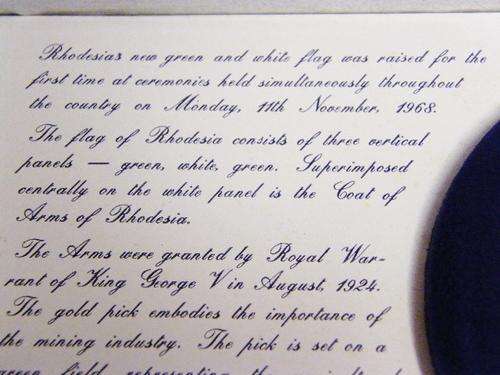 Rhodesia's new green and white flag was raised for the
first time at ceremonies held simultaneously throughout
the country on Monday, 11th November, 1968.
The flag of Rhodesia consists of three vertical
panels — green, white, green. Superimposed
centrally on the white panel is the Coat of
Arms of Rhodesia.
The Arms were granted by Royal War-
rant of King George V in August, 1924.
The gold pick embodies the importance of
the mining industry. The pick is set on a
green field